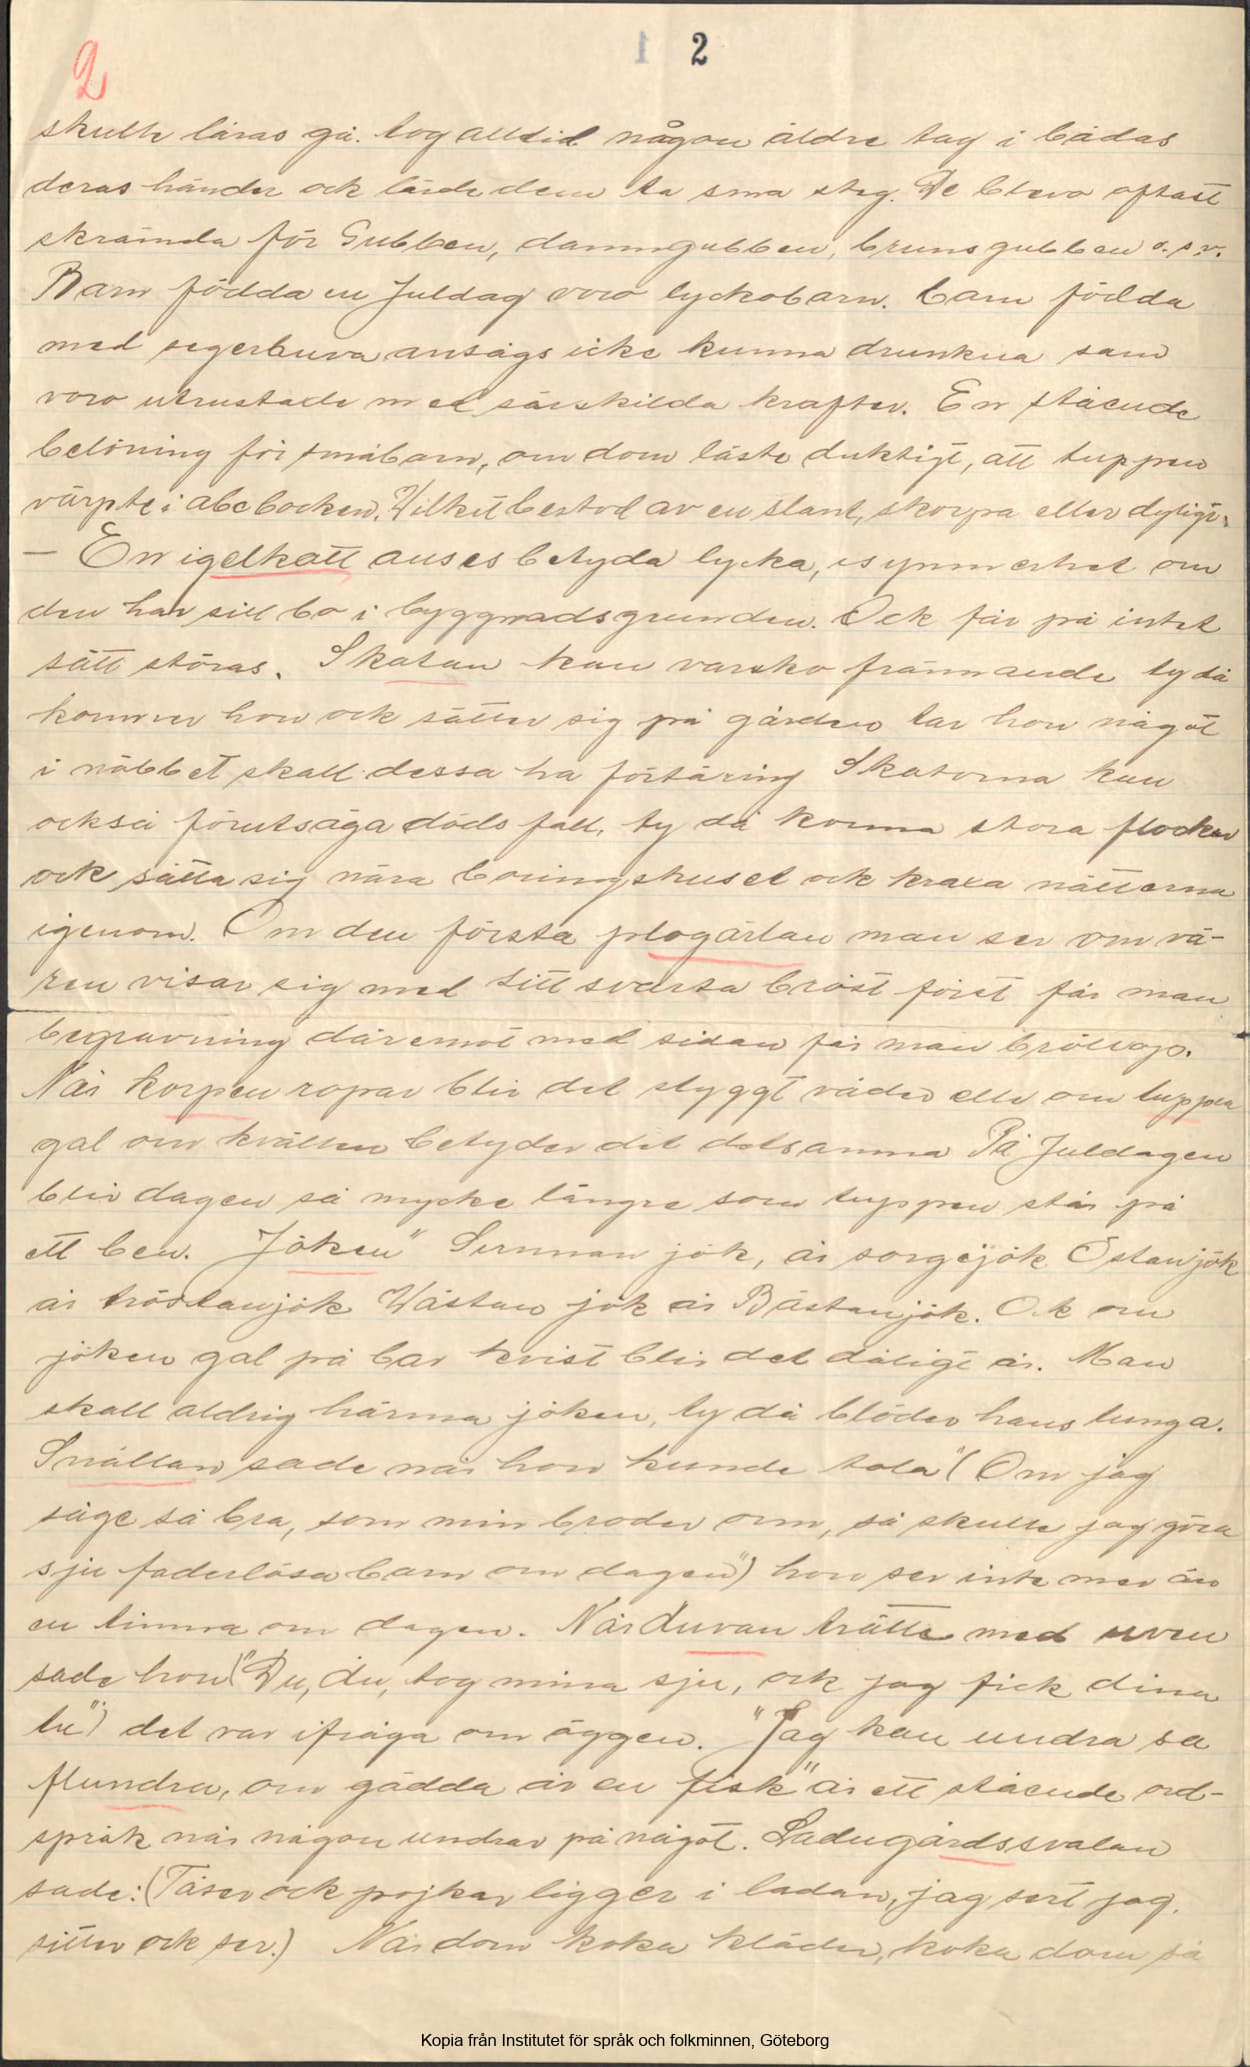 2
1 2
skulle läras gå. tog alltid någon äldre tag i bådas
deras händer ock lärde dem ta små steg. De blevo oftast
skrämda för Gubben, dammgubben, brunsgubben o.s.v.
Barn födda en Juldag voro lyckobarn. barn födda
med segerhuva ansågs icke kunna drunkna samt
voro utrustade med särskilda krafter. En stående
belöning för småbarn, om dom läste duktigt, att tuppen
värpte i abcboken. Wilket bestod av en slant, skorpa eller dyligt.
— En igelkott anses betyda lycka, isynnerhet om
den har sitt bo i byggnadsgrunden. Ock får på intet
sätt störas. Skatan kan varsko främmande ty då
kommer hon ock sätter sig på gården tar hon något
i näbbet skall dessa ha förtäring Skatorna kan
också förutsäga dödsfall, ty då komma stora flockar
ock sätta sig nära boningshuset ock kraxa nätterna
igenom. Om den första plogärlan man ser om vå-
ren visar sig med sitt svarta bröst först får man
begravning däremot med sidan får man bröllop.
När korpen ropar blir det styggt väder eller om tuppen
gal om kvällen betyder det detsamma På Juldagen
blir dagen så mycke längre som tuppen står på
ett ben. Jöken" Sunnan jök, är sorgejök Östanjök
är tröstanjök Wästan jök är Bästanjök. Ock om
jöken gal på bar kvist blir det dåligt år. Man
skall aldrig härma jöken, ty då blöder hans tunga.
Snällan, sade när hon kunde tala "(Om jag
såge så bra, som min broder orm, så skulle jag göra
sju faderlösa barn om dagen") hon ser inte mer än
en timma om dagen. När duvan trätte med uven
sade hon ("Du, du, tog mina sju, ock jag fick dina
tu") det var ifråga om äggen. "Jag kan undra sa
flundra, om gädda är en fisk" är ett stående ord-
språk när någon undrar på något. Ladugårdssvalan
sade: (Täser ock pojkar ligger i ladan, jag sert jag,
sitter ock ser.) När dom koka kläder, koka dom så
Kopia från Institutet för språk och folkminnen, Göteborg